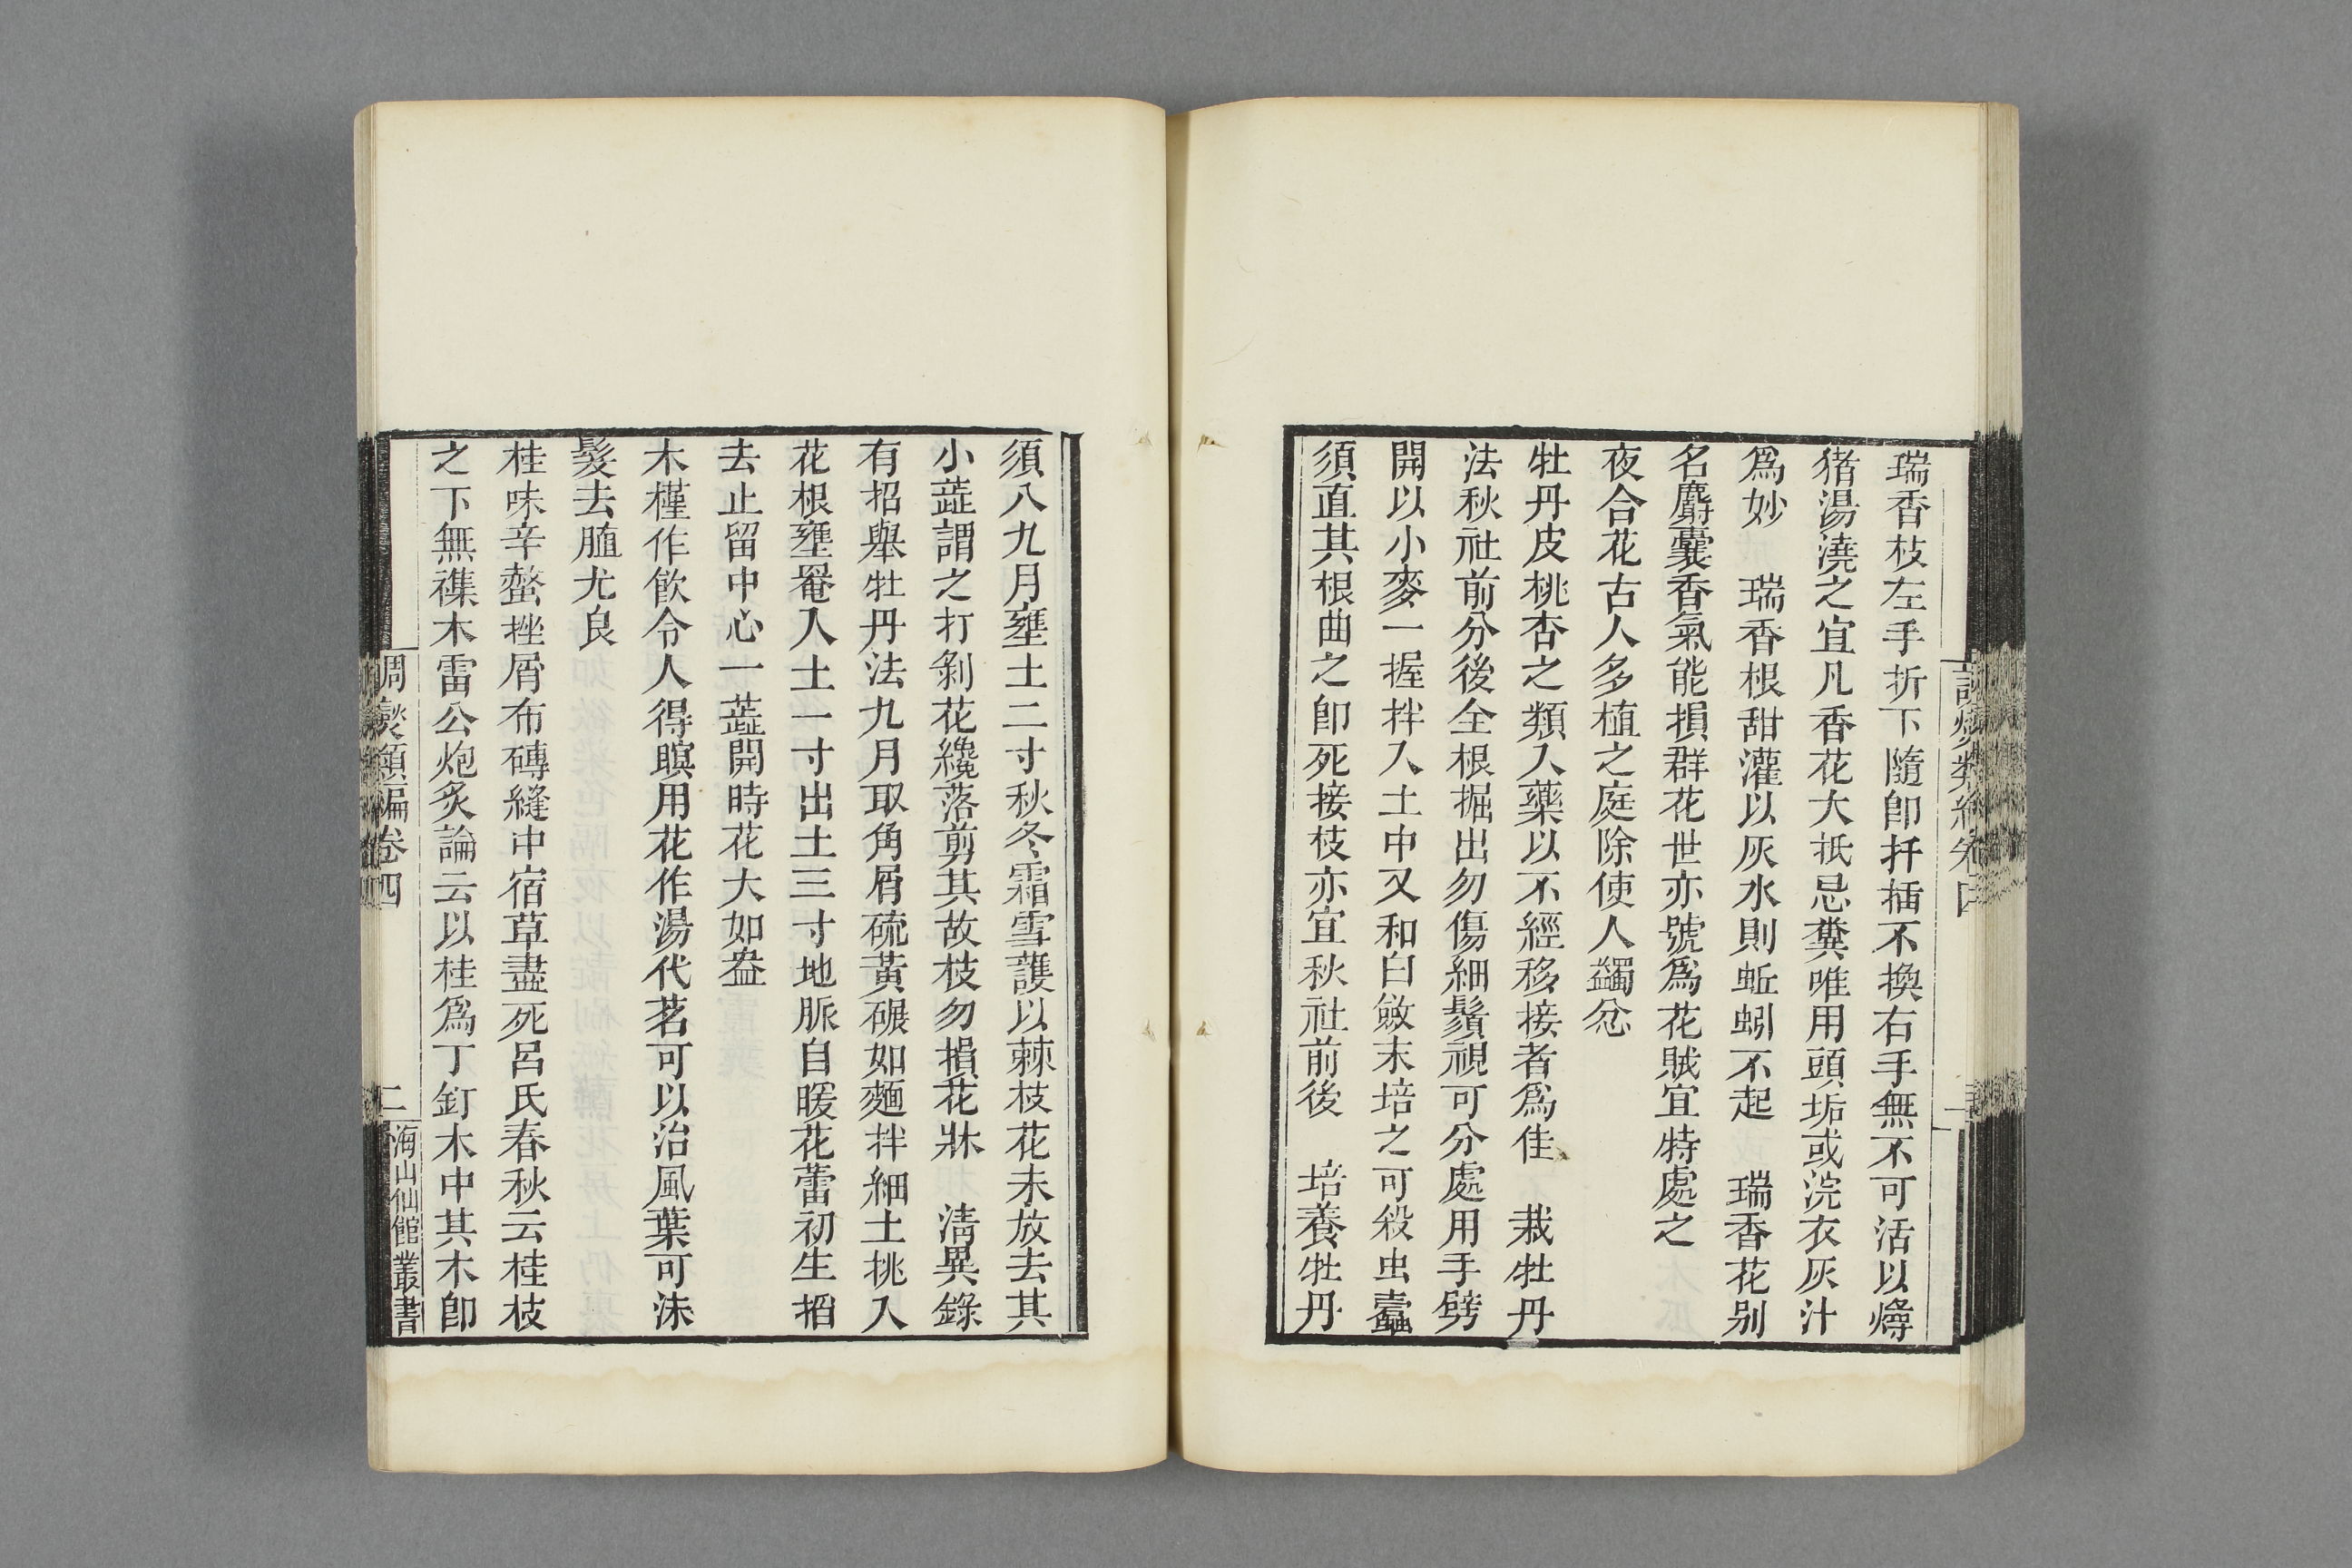 瑞香枝左手折下隨卽扦插不換右手無不可活以燖
猪湯澆之宜凡香花大抵忌糞唯用頭垢或浣衣灰汁
爲妙　瑞香根甜灌以灰水則蚯蚓不起　瑞香花别
名麝囊香氣能損群花世亦號爲花賊宜特處之
夜合花古人多植之庭除使人蠲忿
牡丹皮桃杏之類入藥以不經移接者爲佳　栽牡丹
法秋社前分後全根掘出勿傷細鬚視可分處用手劈
開以小麥一握拌入土中又和白斂末培之可殺虫蠹
須直其根曲之卽死接枝亦宜秋社前後　培養牡丹
須八九月壅土二寸秋冬霜雪護以棘枝花未放去其
小蘂謂之打剝花纔落剪其故枝勿損花牀　淸異錄
有招舉牡丹法九月取角屑硫黃碾如麵拌細土挑入
花根壅罨入土一寸出土三寸地脈自暖花蕾初生掐
去止留中心一蘂開時花大如盎
木槿作飮令人得瞑用花作湯代茗可以治風葉可沬
髮去䐉尤良
桂味辛螫挫屑布磚縫中宿草盡死呂氏春秋云桂枝
之下無襍木雷公炮炙論云以桂爲丁釘木中其木卽
調爕類編卷四
二
海山仙館叢書